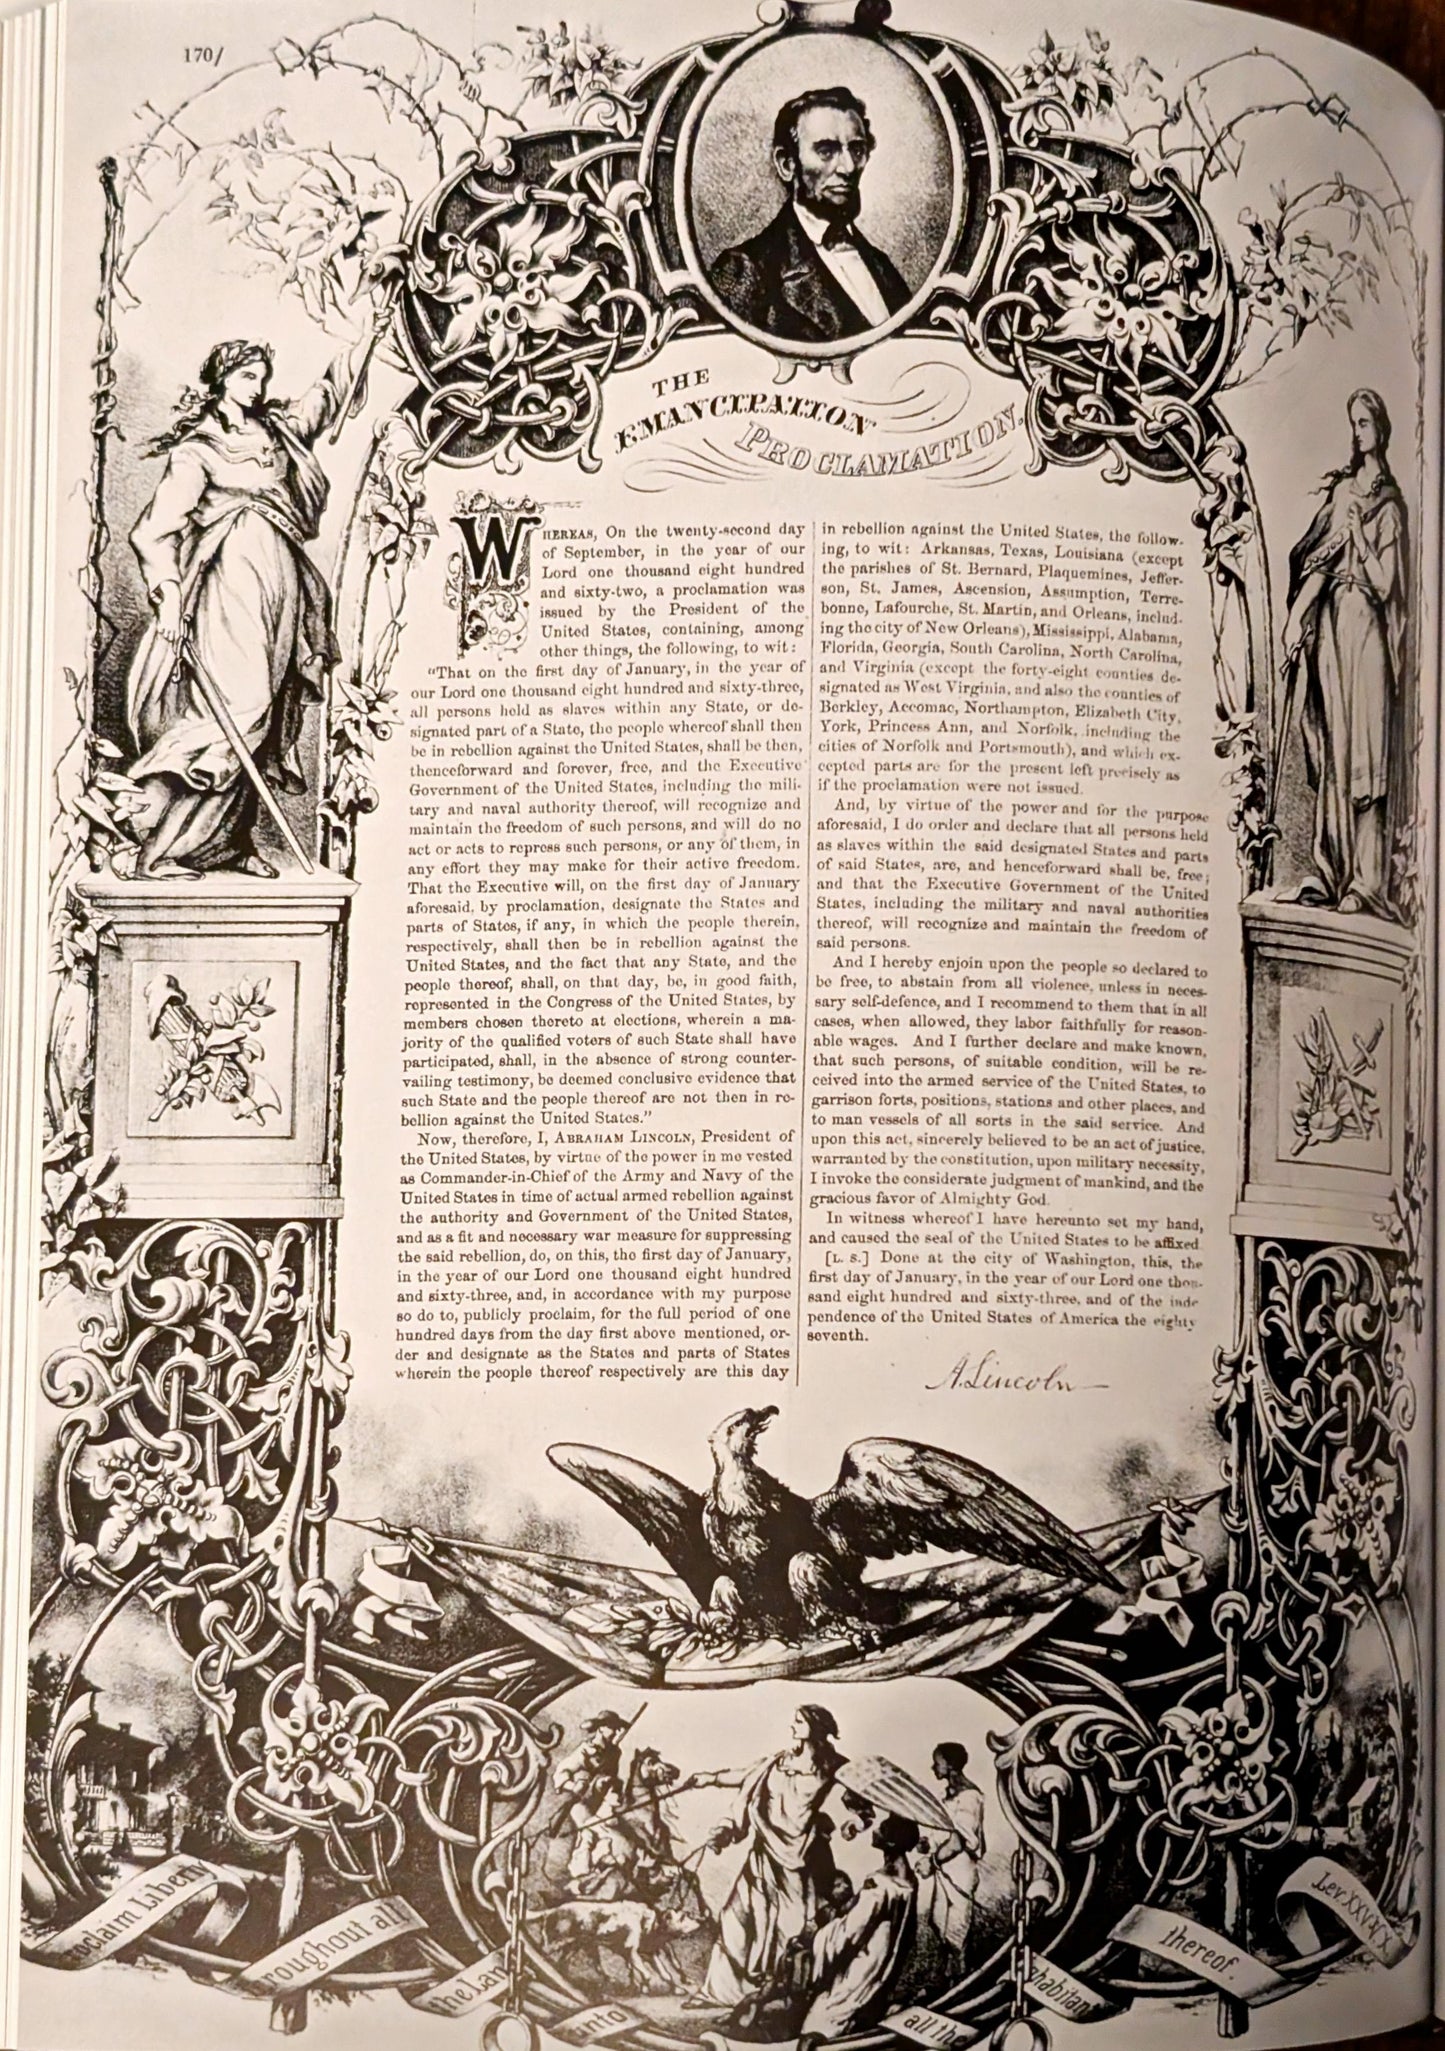 170/
THE
EMANCIPATION
PROCLAMATION.
WHEREAS, On the twenty-second day
of September, in the year of our
Lord one thousand eight hundred
and sixty-two, a proclamation was
issued by the President of the
United States, containing, among
other things, the following, to wit:
"That on the first day of January, in the year of
our Lord one thousand eight hundred and sixty-three,
all persons held as slaves within any State, or de-
signated part of a State, the people whereof shall then
be in rebellion against the United States, shall be then,
thenceforward and forever, free, and the Executive
Government of the United States, including the mili-
tary and naval authority thereof, will recognize and
maintain the freedom of such persons, and will do no
act or acts to repress such persons, or any of them, in
any effort they may make for their active freedom.
That the Executive will, on the first day of January
aforesaid, by proclamation, designate the States and
parts of States, if any, in which the people therein,
respectively, shall then be in rebellion against the
United States, and the fact that any State, and the
people thereof, shall, on that day, be, in good faith,
represented in the Congress of the United States, by
members chosen thereto at elections, wherein a ma-
jority of the qualified voters of such State shall have
participated, shall, in the absence of strong counter-
vailing testimony, be deemed conclusive evidence that
such State and the people thereof are not then in re-
bellion against the United States."
Now, therefore, I, ABRAHAM LINCOLN, President of
the United States, by virtue of the power in me vested
as Commander-in-Chief of the Army and Navy of the
United States in time of actual armed rebellion against
the authority and Government of the United States,
and as a fit and necessary war measure for suppressing
the said rebellion, do, on this, the first day of January,
in the year of our Lord one thousand eight hundred
and sixty-three, and, in accordance with my purpose
so do to, publicly proclaim, for the full period of one
hundred days from the day first above mentioned, or-
der and designate as the States and parts of States
wherein the people thereof respectively are this day
in rebellion against the United States, the follow-
ing, to wit: Arkansas, Texas, Louisiana (except
the parishes of St. Bernard, Plaquemines, Jeffer-
son, St. James, Ascension, Assumption, Terre-
bonne, Lafourche, St. Martin, and Orleans, includ-
ing the city of New Orleans), Mississippi, Alabama,
Florida, Georgia, South Carolina, North Carolina,
and Virginia (except the forty-eight counties de-
signated as West Virginia, and also the counties of
Berkley, Accomac, Northampton, Elizabeth City,
York, Princess Ann, and Norfolk, including the
cities of Norfolk and Portsmouth), and which ex-
cepted parts are for the present left precisely as
if the proclamation were not issued.
And, by virtue of the power and for the purpose
aforesaid, I do order and declare that all persons held
as slaves within the said designated States and parts
of said States, are, and henceforward shall be, free;
and that the Executive Government of the United
States, including the military and naval authorities
thereof, will recognize and maintain the freedom of
said persons.
And I hereby enjoin upon the people so declared to
be free, to abstain from all violence, unless in neces-
sary self-defence, and I recommend to them that in all
cases, when allowed, they labor faithfully for reason-
able wages. And I further declare and make known,
that such persons, of suitable condition, will be re-
ceived into the armed service of the United States, to
garrison forts, positions, stations and other places, and
to man vessels of all sorts in the said service. And
upon this act, sincerely believed to be an act of justice,
warranted by the constitution, upon military necessity,
I invoke the considerate judgment of mankind, and the
gracious favor of Almighty God.
In witness whereof I have hereunto set my hand,
and caused the seal of the United States to be affixed
[L. S.] Done at the city of Washington, this, the
first day of January, in the year of our Lord one thou-
sand eight hundred and sixty-three, and of the inde
pendence of the United States of America the eighty
seventh.
A. Lincoln
oclaim Liberty
roughout all
the Lan
unto
all the
nhabitan
thereof.
Lev. XXV. X